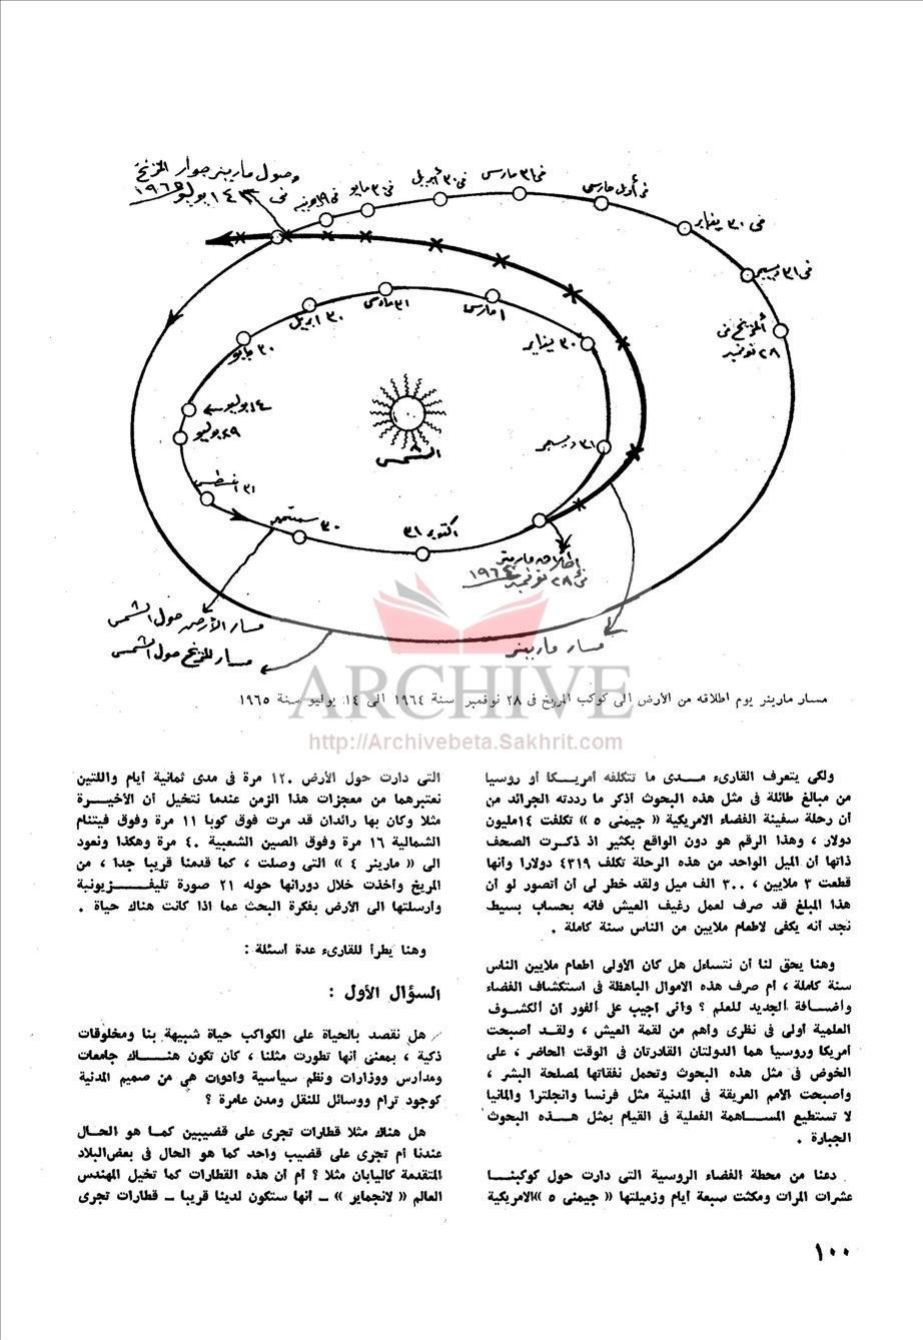 وصول مارينر جوار المريخ
فى ١٤ يوليو ١٩٦٥
فى ١٩ يونيه
فى ٣٠ مايو
فى ٣٠ أبريل
فى ٣١ مارس
فى أول مارس
فى ٣٠ يناير
فى ٣١ ديسمبر
المريخ فى
٢٨ نوفمبر
٣٠ يناير
١ مارس
٣١ مارس
٣٠ ابريل
٣٠ مايو
١٤ يوليو
٢٩ يوليو
٣١ اغسطس
٣٠ سبتمبر
٣١ اكتوبر
٣١ ديسمبر
الشمس
اطلاقه مارينر
فى ٢٨ نوفمبر ١٩٦٤
مسار الأرض حول الشمس
مسار المريخ حول الشمس
مسار مارينر
ARCHIVE
http://Archivebeta.Sakhrit.com
مسار مارينر يوم اطلاقه من الأرض الى كوكب المريخ فى ٢٨ نوفمبر سنة ١٩٦٤ الى ١٤ يوليو سنة ١٩٦٥
ولكى يتعرف القارىء مدى ما تتكلفه أمريكا أو روسيا
من مبالغ طائلة فى مثل هذه البحوث أذكر ما رددته الجرائد من
أن رحلة سفينة الفضاء الامريكية « جيمنى ٥ » تكلفت ١٤مليون
دولار ، وهذا الرقم هو دون الواقع بكثير اذ ذكرت الصحف
ذاتها أن الميل الواحد من هذه الرحلة تكلف ٤٣١٩ دولارا وأنها
قطعت ٣ ملايين ، ٣٠٠ الف ميل ولقد خطر لى أن أتصور لو أن
هذا المبلغ قد صرف لعمل رغيف العيش فانه بحساب بسيط
نجد أنه يكفى لاطعام ملايين من الناس سنة كاملة .
وهنا يحق لنا أن نتساءل هل كان الأولى اطعام ملايين الناس
سنة كاملة ، أم صرف هذه الاموال الباهظة فى استكشاف الفضاء
واضافة الجديد للعلم ؟ وانى أجيب على الفور ان الكشوف
العلمية أولى فى نظرى وأهم من لقمة العيش ، ولقد أصبحت
أمريكا وروسيا هما الدولتان القادرتان فى الوقت الحاضر ، على
الخوض فى مثل هذه البحوث وتحمل نفقاتها لمصلحة البشر ،
وأصبحت الأمم العريقة فى المدنية مثل فرنسا وانجلترا والمانيا
لا تستطيع المساهمة الفعلية فى القيام بمثل هذه البحوث
الجبارة .
دعنا من محطة الفضاء الروسية التى دارت حول كوكبنا
عشرات المرات ومكثت سبعة أيام وزميلتها « جيمنى ٥ »الامريكية
التى دارت حول الأرض ١٢٠ مرة فى مدى ثمانية أيام واللتين
نعتبرهما من معجزات هذا الزمن عندما نتخيل أن الأخيرة
مثلا وكان بها رائدان قد مرت فوق كوبا ١١ مرة وفوق فيتنام
الشمالية ١٦ مرة وفوق الصين الشعبية ٤٠ مرة وهكذا ونعود
الى « مارينر ٤ » التى وصلت ، كما قدمنا قريبا جدا ، من
المريخ وأخذت خلال دورانها حوله ٢١ صورة تليفزيونية
وأرسلتها الى الأرض بفكرة البحث عما اذا كانت هناك حياة .
وهنا يطرأ للقارىء عدة أسئلة :
السؤال الأول :
هل نقصد بالحياة على الكواكب حياة شبيهة بنا ومخلوقات
ذكية ، بمعنى أنها تطورت مثلنا ، كأن تكون هناك جامعات
ومدارس ووزارات ونظم سياسية وأدوات هى من صميم المدنية
كوجود ترام ووسائل للنقل ومدن عامرة ؟
هل هناك مثلا قطارات تجرى على قضيبين كما هو الحال
عندنا أم تجرى على قضيب واحد كما هو الحال فى بعض البلاد
المتقدمة كاليابان مثلا ؟ أم أن هذه القطارات كما تخيل المهندس
العالم « لانجماير » ـ أنها ستكون لدينا قريبا ـ قطارات تجرى
١٠٠